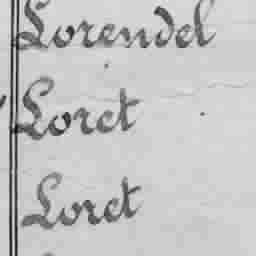 Lorendel
Loret
Loret